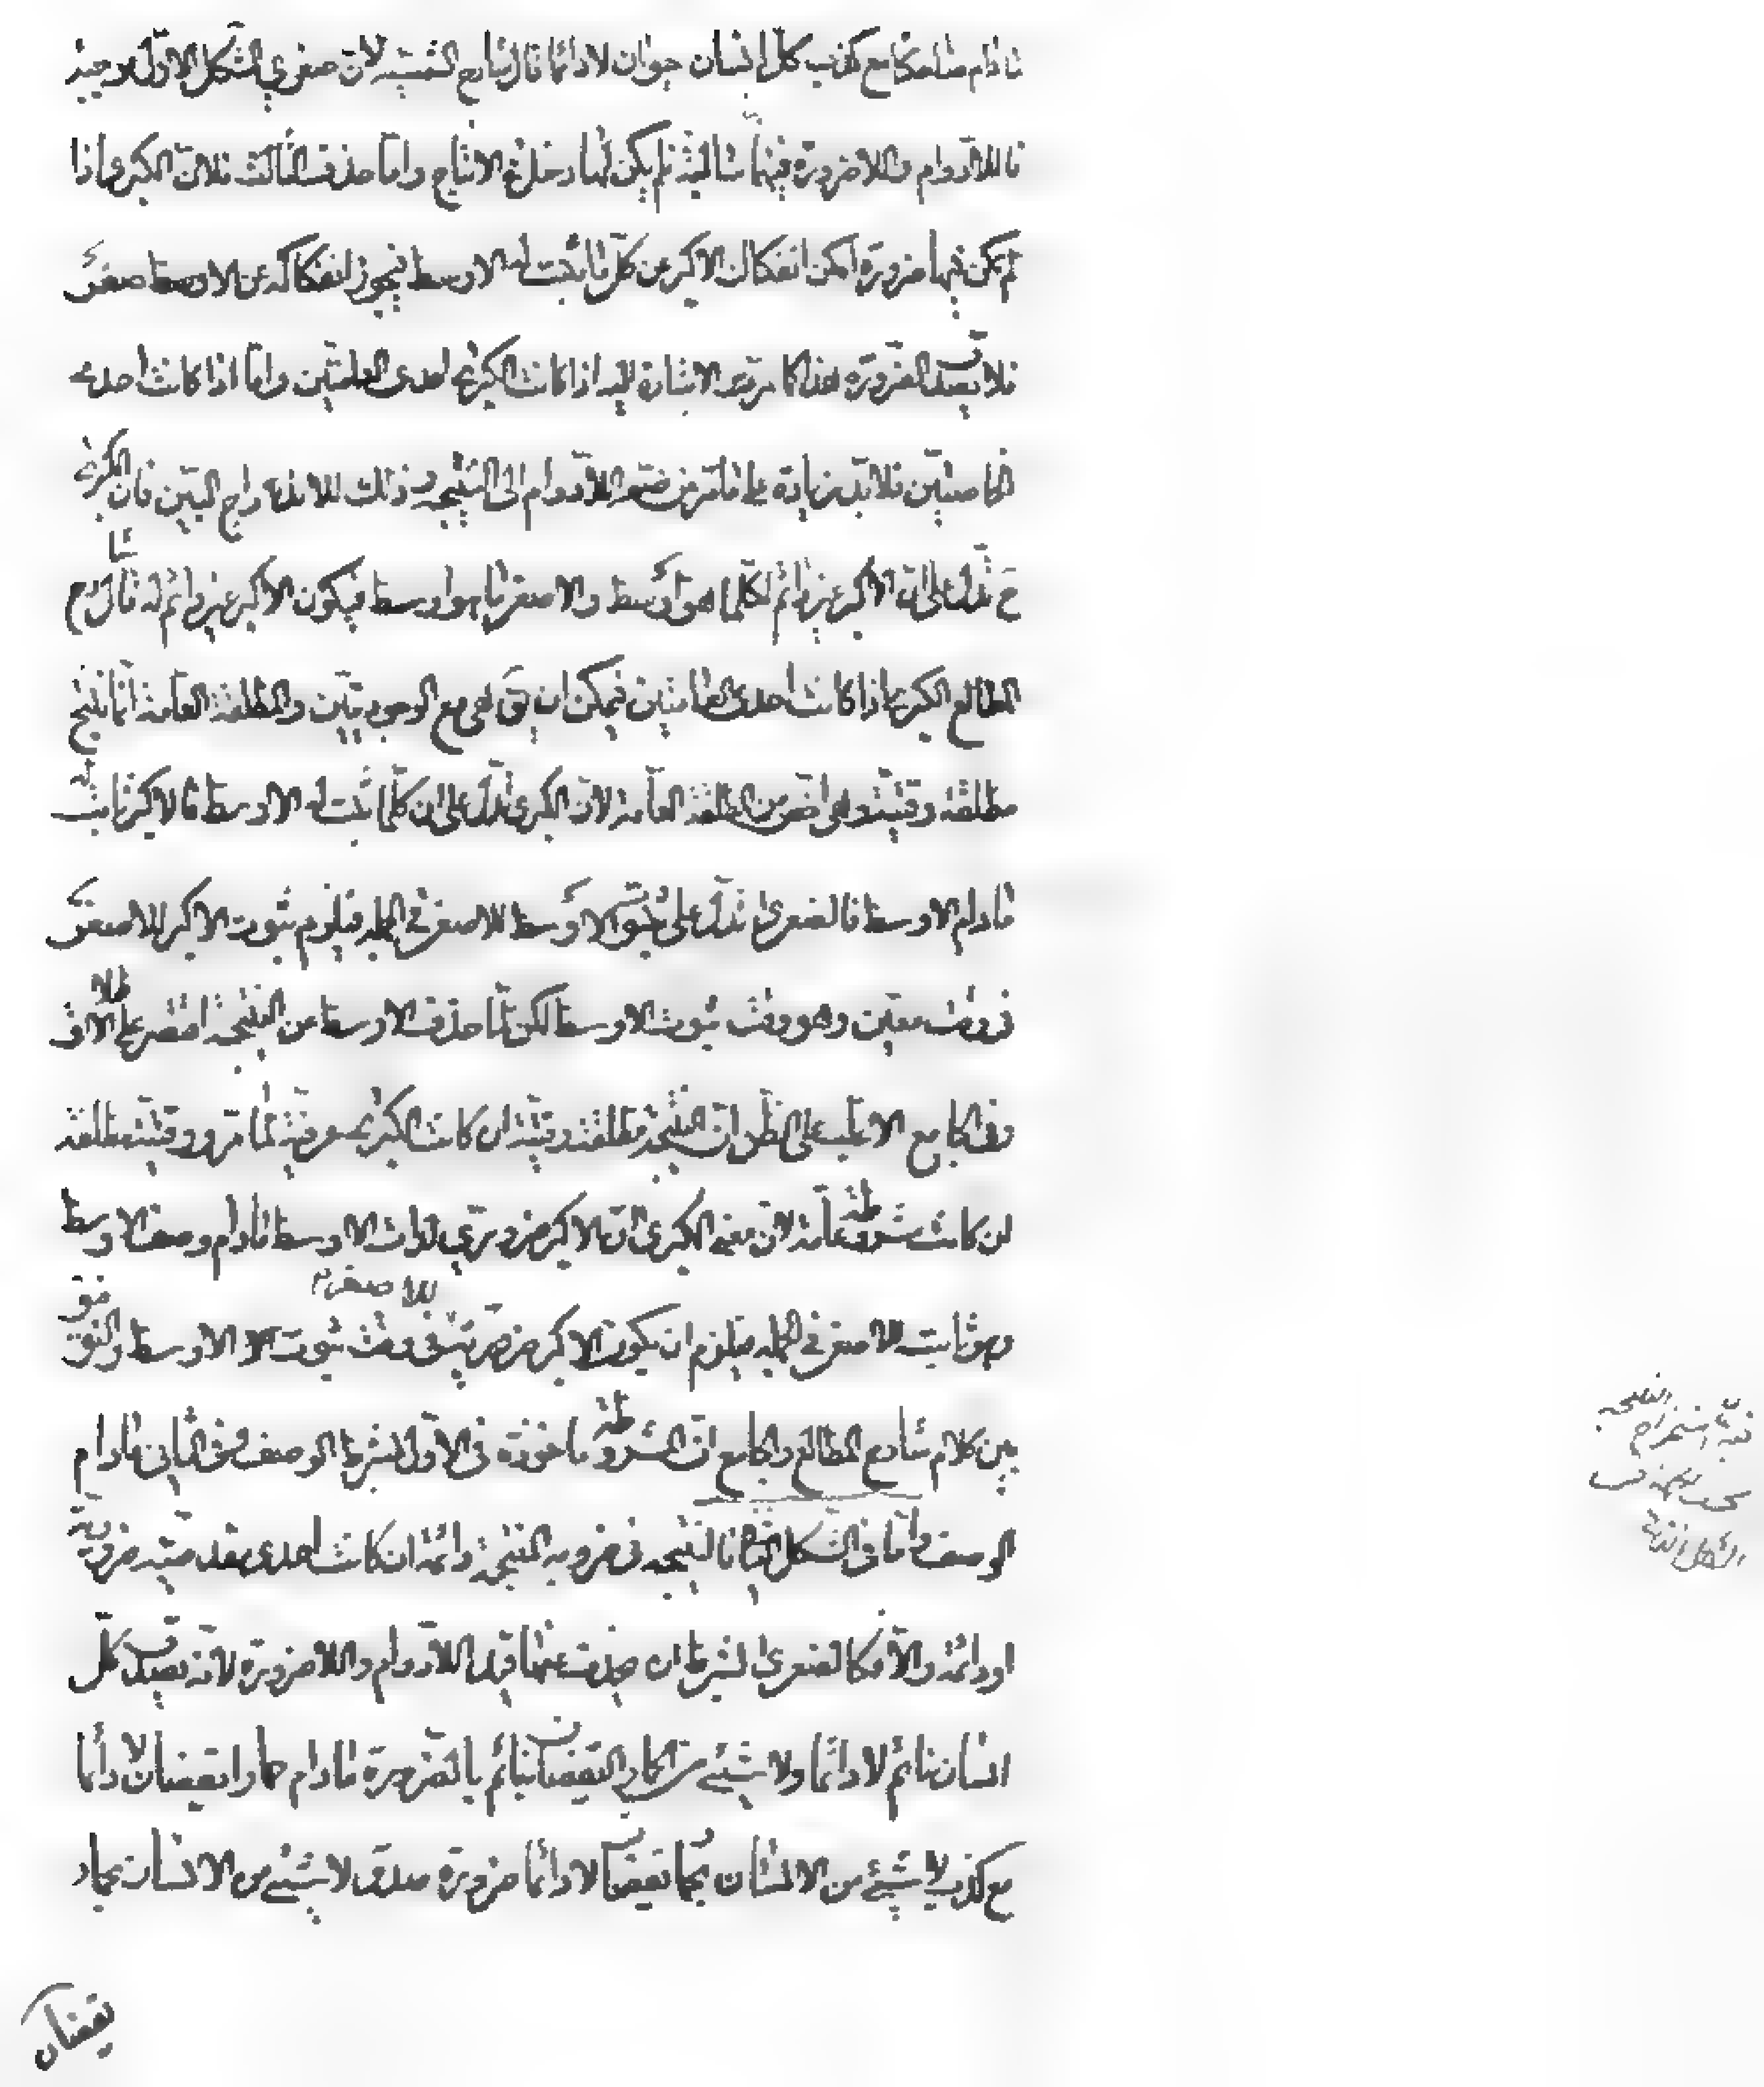 مادام ضاحكا مع كذب كل انسان حيوان لا دائما قال شارح الشمسية لان صغرى الشكل الاول موجبة
فاللادوام واللاضرورة فيها سالبة فلم يكن لها دخل فى الانتاج واما حذف الثالث فلان الكبرى اذا
لم يكن فيها ضرورة امكن انفكاك الاكبر عن كل ما يثبت له الاوسط فيجوز انفكاكه عن الاوسط صغر
فلا يتعد الضرورة هذا كما مرت الاشارة اليه اذا كانت الكبرى احدى العامتين واما اذا كانت احدى
الخاصتين فلا بد زيادة على ما مر من ضم اللادوام الى النتيجة وذلك للاندراج البين فان الكبرى
ح تدل على ان الاكبر غير دائم لكل ما هو اوسط والاصغر مما هو اوسط فيكون الاكبر غير دائم له قال شارح
المطالع الكبرى اذا كانت احدى العامتين فيمكن ان يق هى مع الوجوديتين والمطلقة العامة انما ينتج
مطلقة وقتية وهى اخص من المطلقة العامة لان الكبرى تدل على ان كلما ثبت له الاوسط فالاكبر ثابت له
مادام الاوسط فالصغرى تدل على ثبوت الاوسط للاصغر فى الجملة فيلزم ثبوت الاكبر للاصغر
فى وقت معين وهو وقت ثبوت الاوسط لكن لما حذف الاوسط من النتيجة اقتصر على الاطلاق
وفى الجامع الاغلب على الظن ان النتيجة مطلقة وقتية ان كانت الكبرى عرفية لما مر ووقتية مطلقة
ان كانت مشروطة عامة لان معنى الكبرى ان الاكبر ضرورى لذات الاوسط مادام وصف الاوسط
وهو ثابت للاصغر فى الجملة فيلزم ان يكون الاكبر ضروريته للاصغر فى وقت ثبوت الاوسط والتوفيق
بين كلام شارح المطالع والجامع ان المشروطة ماخوذة فى الاول بشرط الوصف وفى الثانى مادام
الوصف واما فى الشكل الثانى فالنتيجة فى ضروبه المنتجة دائمة ان كانت احدى مقدمتيه ضرورية
او دائمة والا فكالصغرى بشرط ان حذف عنها قيد اللادوام واللاضرورة لانه يصدق كل
انسان نائم لا دائما ولا شىء من الحمار اليقضان بنائم بالضرورة مادام حمارا يقضان لا دائما
مع كذب لا شىء من الانسان بحمار يقضان لا دائما ضرورة صدق لا شىء من الانسان بحمار
يقضان